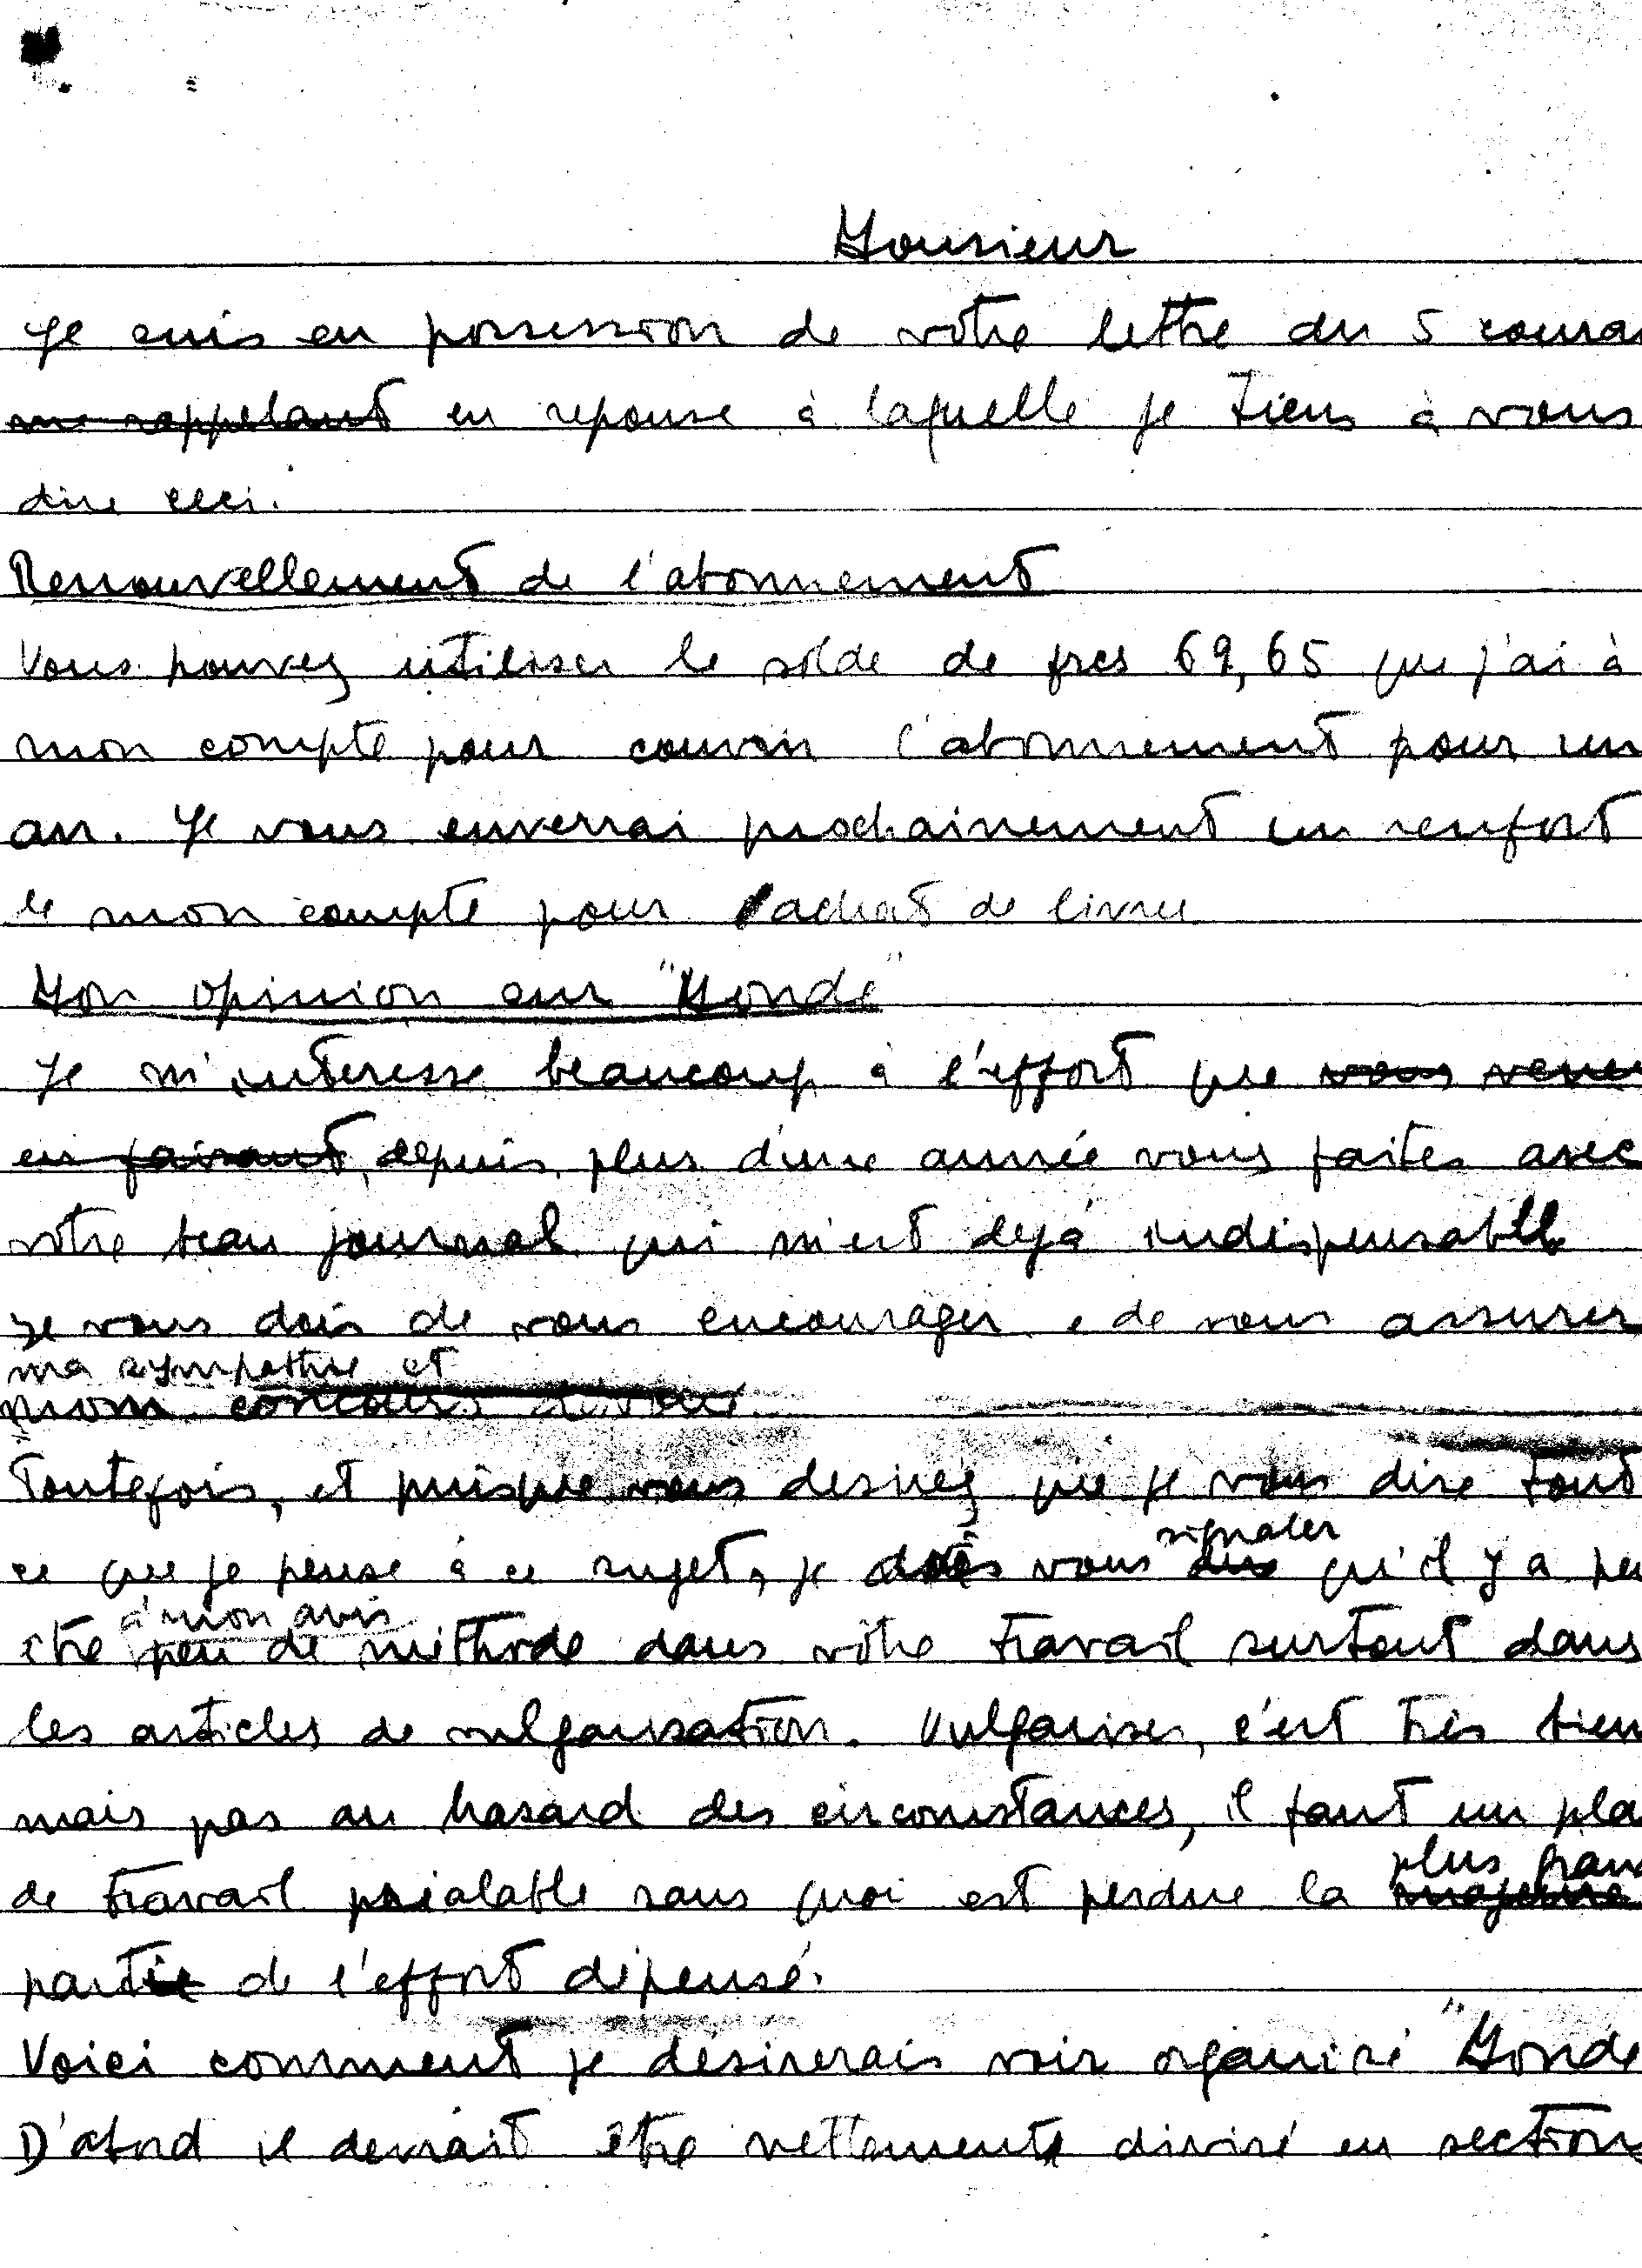 Monsieur
Je suis en possession de votre lettre du 5 coura
me rappelant en reponse à laquelle je tiens à vous
dire ceci.
Renouvellement de l'abonnement
Vous pouvez utiliser le solde de frcs 69,65 que j'ai à
mon compte pour couvrir l'abonnement pour un
an. Je vous enverrai prochainement un renfort
de mon compte pour achat de livres
Mon opinion sur "Monde"
Je m'interesse beaucoup à l'effort que vous venez
en faisant, depuis plus d'une année vous faites avec
votre beau journal qui m'est dejà indispensable
Je vous dois de vous encourager e de vous assurer
ma sympathie et
mon concours devoué.
Toutefois, et puisque vous desirez que je vous dise tout
ce que je pense à ce sujet, je dois vous dire signaler qu'il y a peu
être à mon avis peu de méthode dans vôtre travail surtout dans
les articles de vulgarisation. Vulgariser, c'est très bien
mais pas au hasard des circonstances, il faut un pla
de travail préalable sans quoi est perdue la majeure plus gran
partie de l'effort dépensé.
Voici comment je desirerais voir organisé "Monde
D'abord il devrait être nettement divisé en section